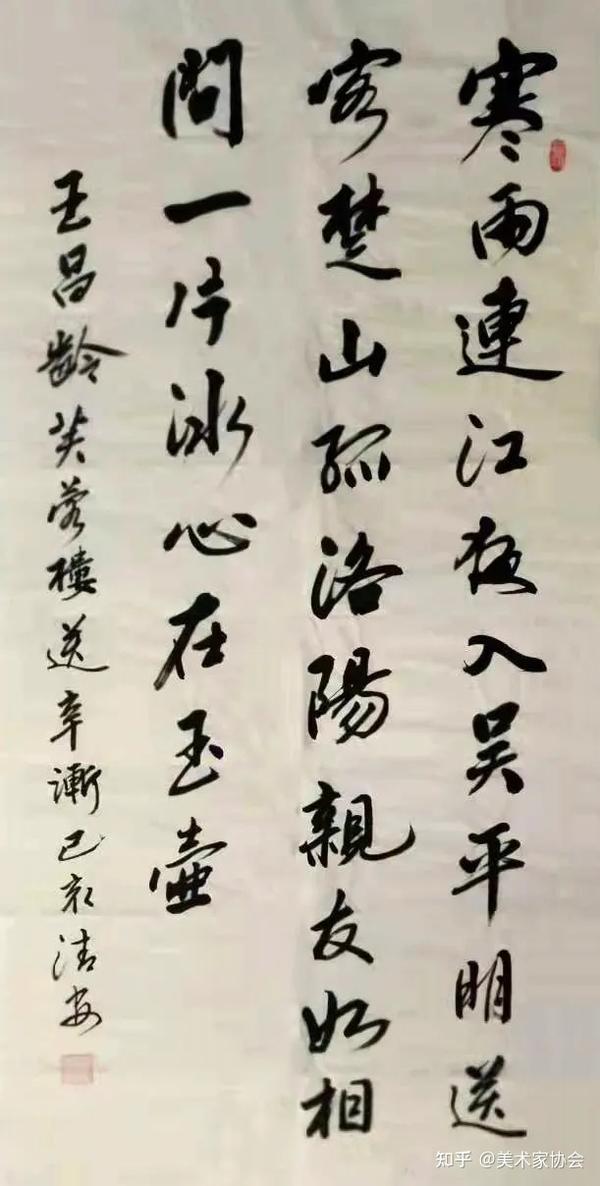 寒雨連江夜入吴平明送
客楚山孤洛陽親友如相
問一片冰心在玉壺
王昌齡芙蓉樓送辛漸己亥清安
知乎 @美术家协会